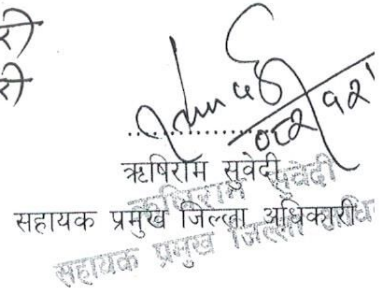 री
री
ऋषिराम सुवेदी
सहायक प्रमुख जिल्ला अधिकारी
ऋषिराम सुवेदी
सहायक प्रमुख जिल्ला अधि